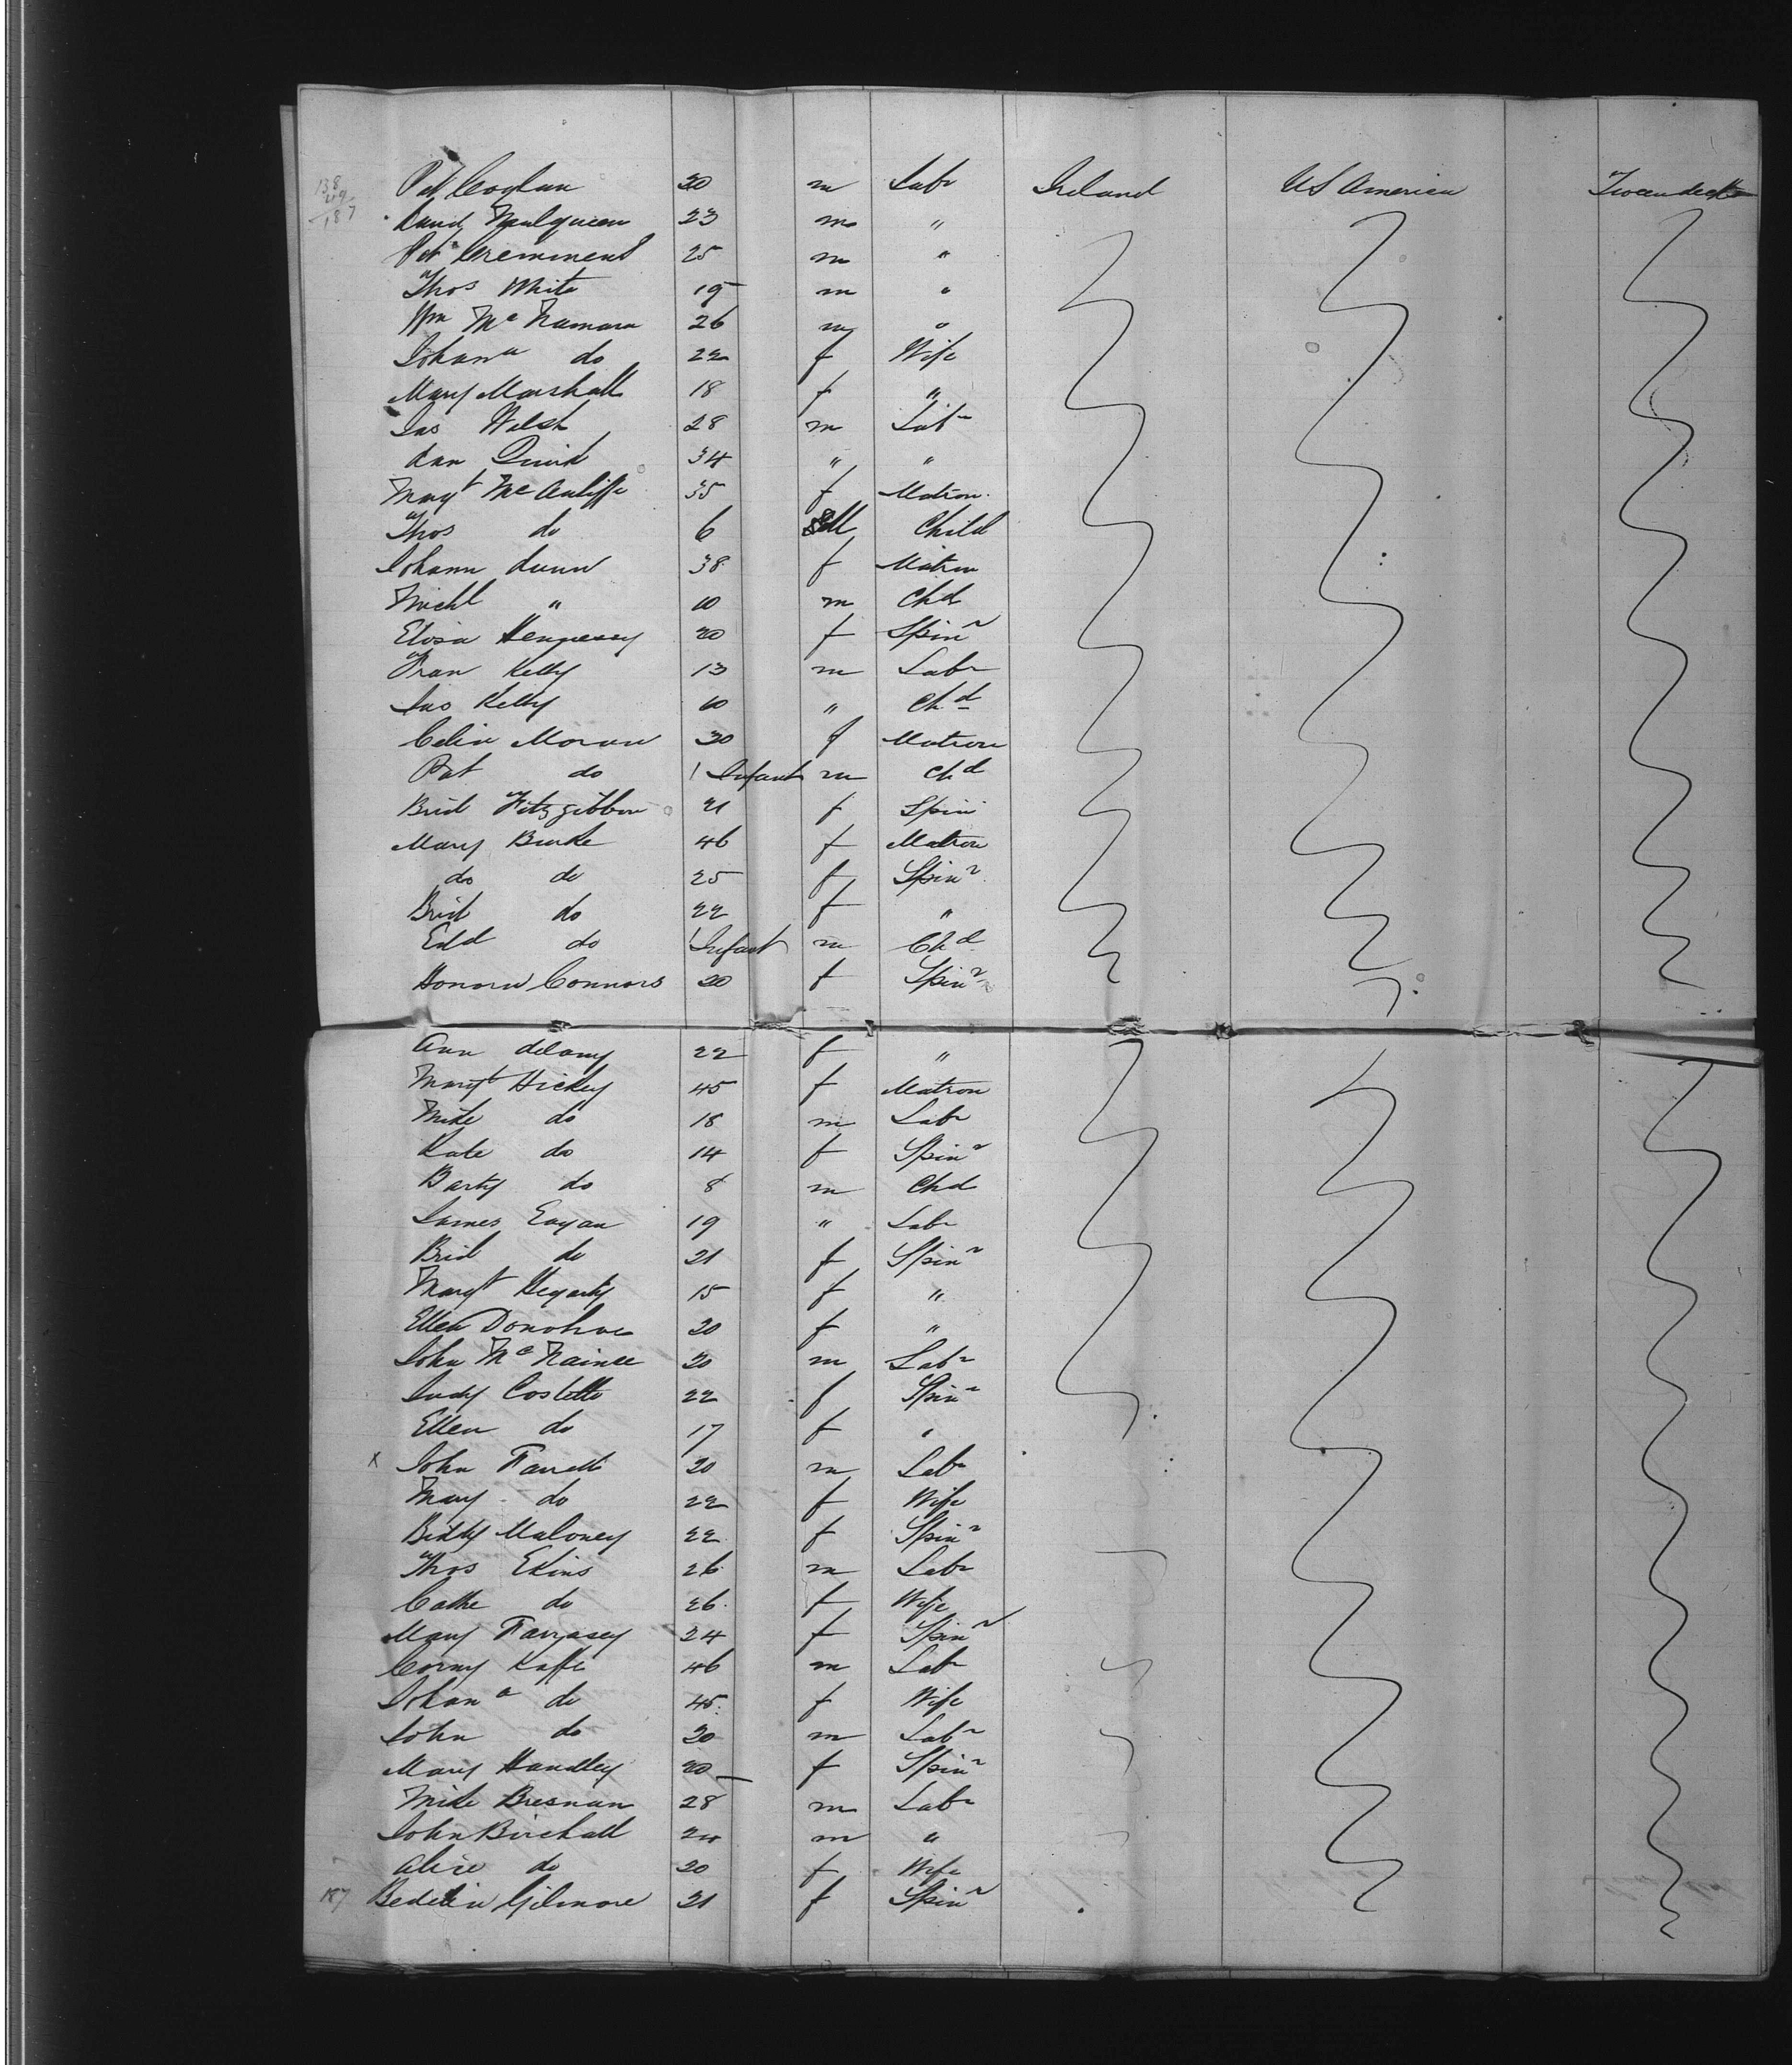 138
49
187
Pat Coghan 20 m Labr Ireland US America Tweendecks
David Mulqueen 23 m "
Pat Cremmens 25 m "
Thos White 19 m "
Wm McNamara 26 m "
Johana do 22 f Wife
Mary Marshall 18 f "
Jas Welsh 28 m Labr
Dan Quirk 34 " "
Margt McAuliffe 35 f Matron
Thos do 6 M Child
Johann Dunn 38 f Matron
Michl " 10 m Chd
Eliza Hennessy 20 f Spinr
Fran Kelly 13 m Labr
Jas Kelly 10 " Chd
Celia Moran 30 f Matron
Pat do 1 Infant m Chd
Brid Fitzgibbon 21 f Spin
Mary Burke 46 f Matron
do do 25 f Spinr
Brid do 22 f "
Edd do 1 Infant m Chd
Honora Connors 20 f Spinr
Ann Delany 22 f "
Margt Hickey 45 f Matron
Mike do 18 m Labr
Kate do 14 f Spinr
Barty do 8 m Chd
James Eagan 19 " Labr
Brid do 21 f Spinr
Margt Hegarty 15 f "
Ellen Donohue 20 f "
John Mc 20 m Labr
Judy Costello 22 f Spinr
Ellen do 17 f "
x John 20 m Labr
Mary do 22 f Wife
Biddy Maloney 22 f Spinr
Thos Ekins 26 m Labr
Cathe do 26 f Wife
Mary 24 f Spinr
Corny 46 m Labr
Johana do 45 f Wife
John do 20 m Labr
Mary Handley 20 f Spinr
Mike Bresnan 28 m Labr
John Birchall 24 m "
Alice do 20 f Wife
187 Bedelia Gilmore 21 f Spinr